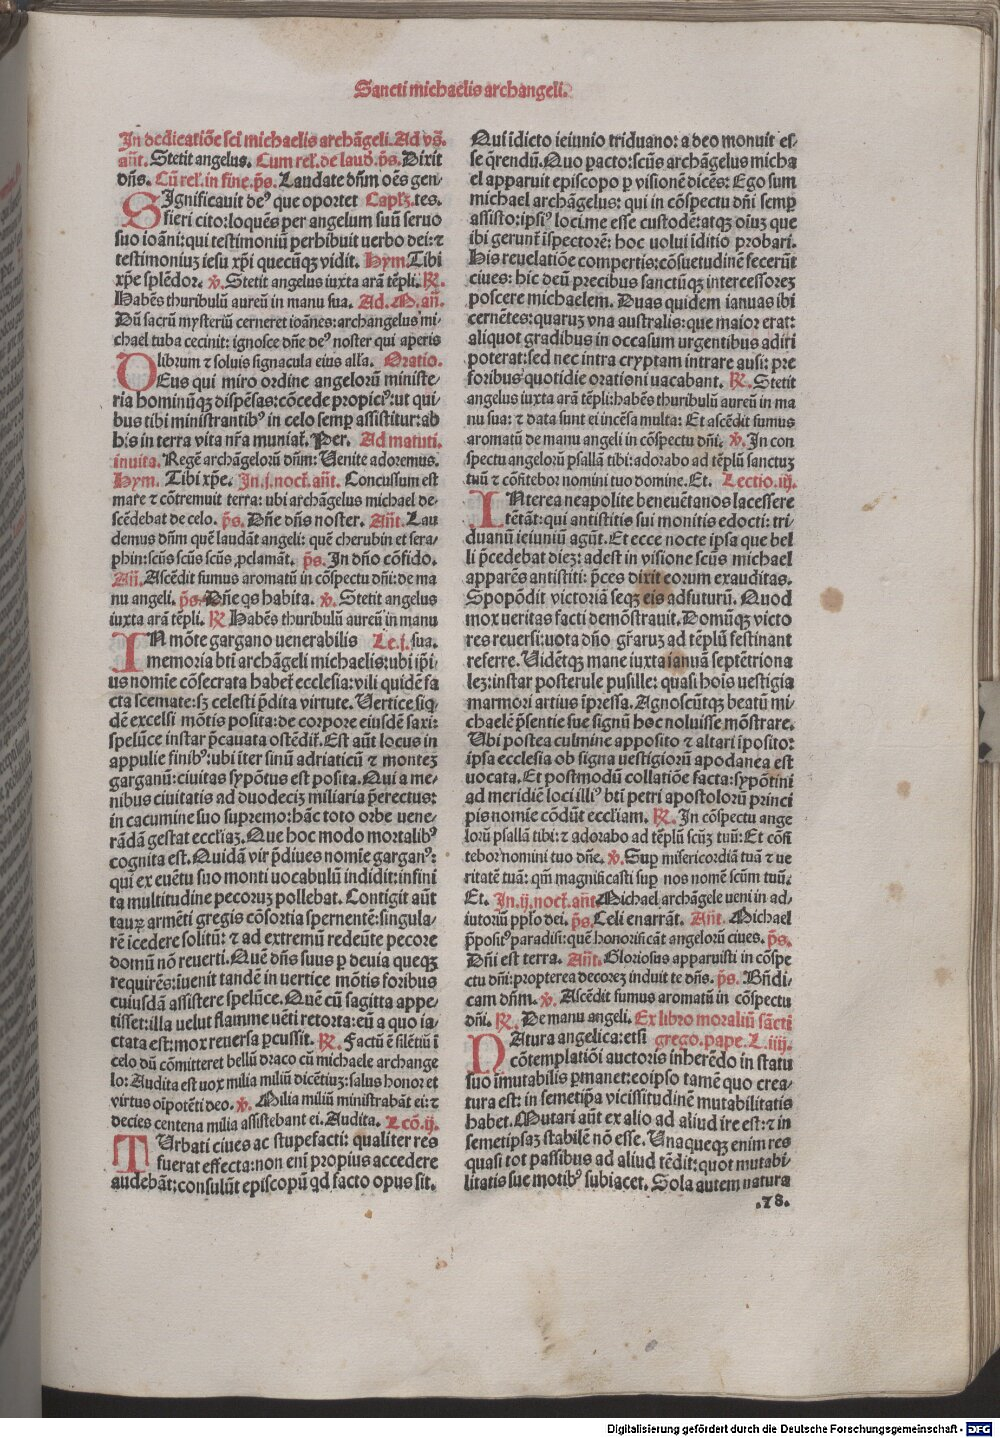 Sancti michaelis archangeli.
In dedicatiõe scĩ michaelis archãgeli. Ad vs̃.
añt. Stetit angelus. Cum rel̃. de laud. p̄s. Dixit
dñs. Cũ rel̃. in fine. p̄s. Laudate dñm oẽs gen-
SIgnificauit deꝰ que oportet Caplꝫ. tes.
fieri cito: loquẽs per angelum suũ seruo
suo ioãni: qui testimoniũ perhibuit uerbo dei: ⁊
testimoniuꝫ iesu xp̃i quecũqꝫ vidit. Hym. Tibi
xp̃e splẽdor. ℣. Stetit angelus iuxta arã tẽpli. ℟.
Habẽs thuribulũ aureũ in manu sua. Ad. M. añ.
Dũ sacrũ mysteriũ cerneret ioãnes: archangelus mi-
chael tuba cecinit: ignosce dñe deꝰ noster qui aperis
librum ⁊ soluis signacula eius alľa. Oratio.
DEus qui miro ordine angelorũ ministe-
ria hominũqꝫ dispẽsas: cõcede propiciꝰ: ut qui-
bus tibi ministrantibꝰ in celo semp assistitur: ab
his in terra vita nr̃a muniaľ. Per. Ad matuti.
inuita. Regẽ archãgelorũ dñm: Venite adoremus.
Hym. Tibi xp̃e. In. j. nocľ. añt. Concussum est
mare ⁊ cõtremuit terra: ubi archãgelus michael de-
scẽdebat de celo. p̄s. Dñe dñs noster. Añt. Lau
demus dñm quẽ laudãt angeli: quẽ cherubin et sera-
phin: scũs scũs scũs ꝓclamãt. p̄s. In dño cõfido.
Añ. Ascẽdit fumus aromatũ in cõspectu dñi: de ma
nu angeli. p̄s. Dñe qs habita. ℣. Stetit angelus
iuxta arã tẽpli. ℟ Habẽs thuribulũ aureũ in manu
IN mõte gargano uenerabilis Le. j. sua.
memoria bti archãgeli michaelis: ubi ip̃i-
us nomĩe cõsecrata habeľ ecclesia: vili quidẽ fa
cta scemate: sꝫ celesti p̃dita virtute. Vertice siq-
dẽ excelsi mõtis posita: de corpore eiusdẽ saxi:
spelũce instar p̃cauata ostẽdiľ. Est aũt locus in
appulie finibꝰ: ubi iter sinũ adriaticũ ⁊ monteꝫ
garganũ: ciuitas sypõtus est posita. Qui a me-
nibus ciuitatis ad duodeciꝫ miliaria p̃erectus:
in cacumine suo supremo: hãc toto orbe uene-
rãdã gestat eccľiaꝫ. Que hoc modo mortalibꝰ
cognita est. Quidã vir p̃diues nomĩe garganꝰ:
qui ex euẽtu suo monti uocabulũ indidit: infini
ta multitudine pecoruꝫ pollebat. Contigit aũt
tauꝝ armẽti gregis cõsortia spernentẽ: singula-
rẽ ĩcedere solitũ: ⁊ ad extremũ redeũte pecore
domũ nõ reuerti. Quẽ dñs suus ꝑ deuia queqꝫ
requirẽs: ĩuenit tandẽ in vertice mõtis foribus
cuiusdã assistere spelũce. Quẽ cũ sagitta appe-
tisset: illa uelut flamme uẽti retorta: eũ a quo ia-
ctata est: mox reuersa ꝑcussit. ℟. Factũ ẽ silẽtiũ ĩ
celo dũ cõmitteret bellũ draco cũ michaele archange
lo: Audita est uox milia miliũ dicẽtiuꝫ: salus honor et
virtus oĩpotẽti deo. ℣. Milia miliũ ministrabãt ei: ⁊
decies centena milia assistebant ei. Audita. Lcõ. ij.
TUrbati ciues ac stupefacti: qualiter res
fuerat effecta: non enĩ propius accedere
audebãt: consulũt episcopũ qd facto opus sit.
Qui ĩdicto ieiunio triduano: a deo monuit es-
se q̃rendũ. Quo pacto: scũs archãgelus micha
el apparuit episcopo ꝑ visionẽ dicẽs: Ego sum
michael archãgelus: qui in cõspectu dñi semꝑ
assisto: ipsiꝰ loci me esse custodẽ: atqꝫ oĩuꝫ que
ibi gerunľ ĩspectorẽ: hoc uolui ĩditio probari.
His reuelatiõe compertis: cõsuetudinẽ fecerũt
ciues: hic deũ precibus sanctũqꝫ intercessoreꝫ
poscere michaelem. Duas quidem ianuas ibi
cernẽtes: quaruꝫ vna australis: que maior erat:
aliquot gradibus in occasum urgentibus adiri
poterat: sed nec intra cryptam intrare ausi: pre
foribus quotidie orationi uacabant. ℟. Stetit
angelus iuxta arã tẽpli: habẽs thuribulũ aureũ in ma
nu sua: ⁊ data sunt ei incẽsa multa: Et ascẽdit fumus
aromatũ de manu angeli in cõspectu dñi. ℣. In con
spectu angelorũ psallã tibi: adorabo ad tẽplũ sanctuꝫ
tuũ ⁊ cõfitebor nomini tuo domine. Et. Lectio. iij.
INterea neapolite beneuẽtanos lacessere
tẽtãt: qui antistitis sui monitis edocti: tri-
duanũ ieiuniũ agũt. Et ecce nocte ipsa que bel
li p̃cedebat dieꝫ: adest in visione scũs michael
apparẽs antistiti: p̃ces dixit eorum exauditas.
Spopõdit victoriã seqꝫ eis adfuturũ. Quod
mox ueritas facti demõstrauit. Domũqꝫ victo
res reuersi: uota dño gr̃aruꝫ ad tẽplũ festinant
referre. Vidẽtqꝫ mane iuxta ianuã septẽtriona
leꝫ: instar posterule pusille: quasi hoĩs uestigia
marmori artius ĩpressa. Agnoscũtqꝫ beatũ mi-
chaelẽ p̃sentie sue signũ hoc noluisse mõstrare.
Vbi postea culmine apposito ⁊ altari ĩposito:
ipsa ecclesia ob signa uestigiorũ apodanea est
uocata. Et postmodũ collatiõe facta: sypõtini
ad meridiẽ loci illiꝰ bti petri apostolorũ princi
pis nomĩe cõdũt eccľiam. ℟. In cõspectu ange
lorũ psallã tibi: ⁊ adorabo ad tẽplũ scũꝫ tuũ: Et cõfi
tebor nomini tuo dñe. ℣. Suꝑ misericordiã tuã ⁊ ue
ritatẽ tuã: qm̃ magnificasti suꝑ nos nomẽ scũm tuũ.
Et. In. ij. nocľ. añt Michael archãgele ueni in ad-
iutoriũ ppľo dei. p̄s. Celi enarrãt. Añt. Michael
p̃positꝰ paradisi: quẽ honorificãt angelorũ ciues. p̄s.
Dñi est terra. Añt. Gloriosus apparuisti in cõspe
ctu dñi: propterea decoreꝫ induit te dñs. p̄s. Bñdi-
cam dñm. ℣. Ascẽdit fumus aromatũ in cõspectu
dñi. ℟. De manu angeli. Ex libro moraliũ sãcti
NAtura angelica: etsi grego. pape. L. iiij.
cõtemplatiõi auctoris inherẽdo in statu
suo ĩmutabilis ꝑmanet: eoipso tamẽ quo crea-
tura est: in semetip̃a vicissitudinẽ mutabilitatis
habet. Mutari aũt ex alio ad aliud ire est: ⁊ in
semetipsaꝫ stabilẽ nõ esse. Vnaqueqꝫ enim res
quasi tot passibus ad aliud tẽdit: quot mutabi-
litatis sue motibꝰ subiacet. Sola autem natura
.78.
Digitalisierung gefördert durch die Deutsche Forschungsgemeinschaft - DFG